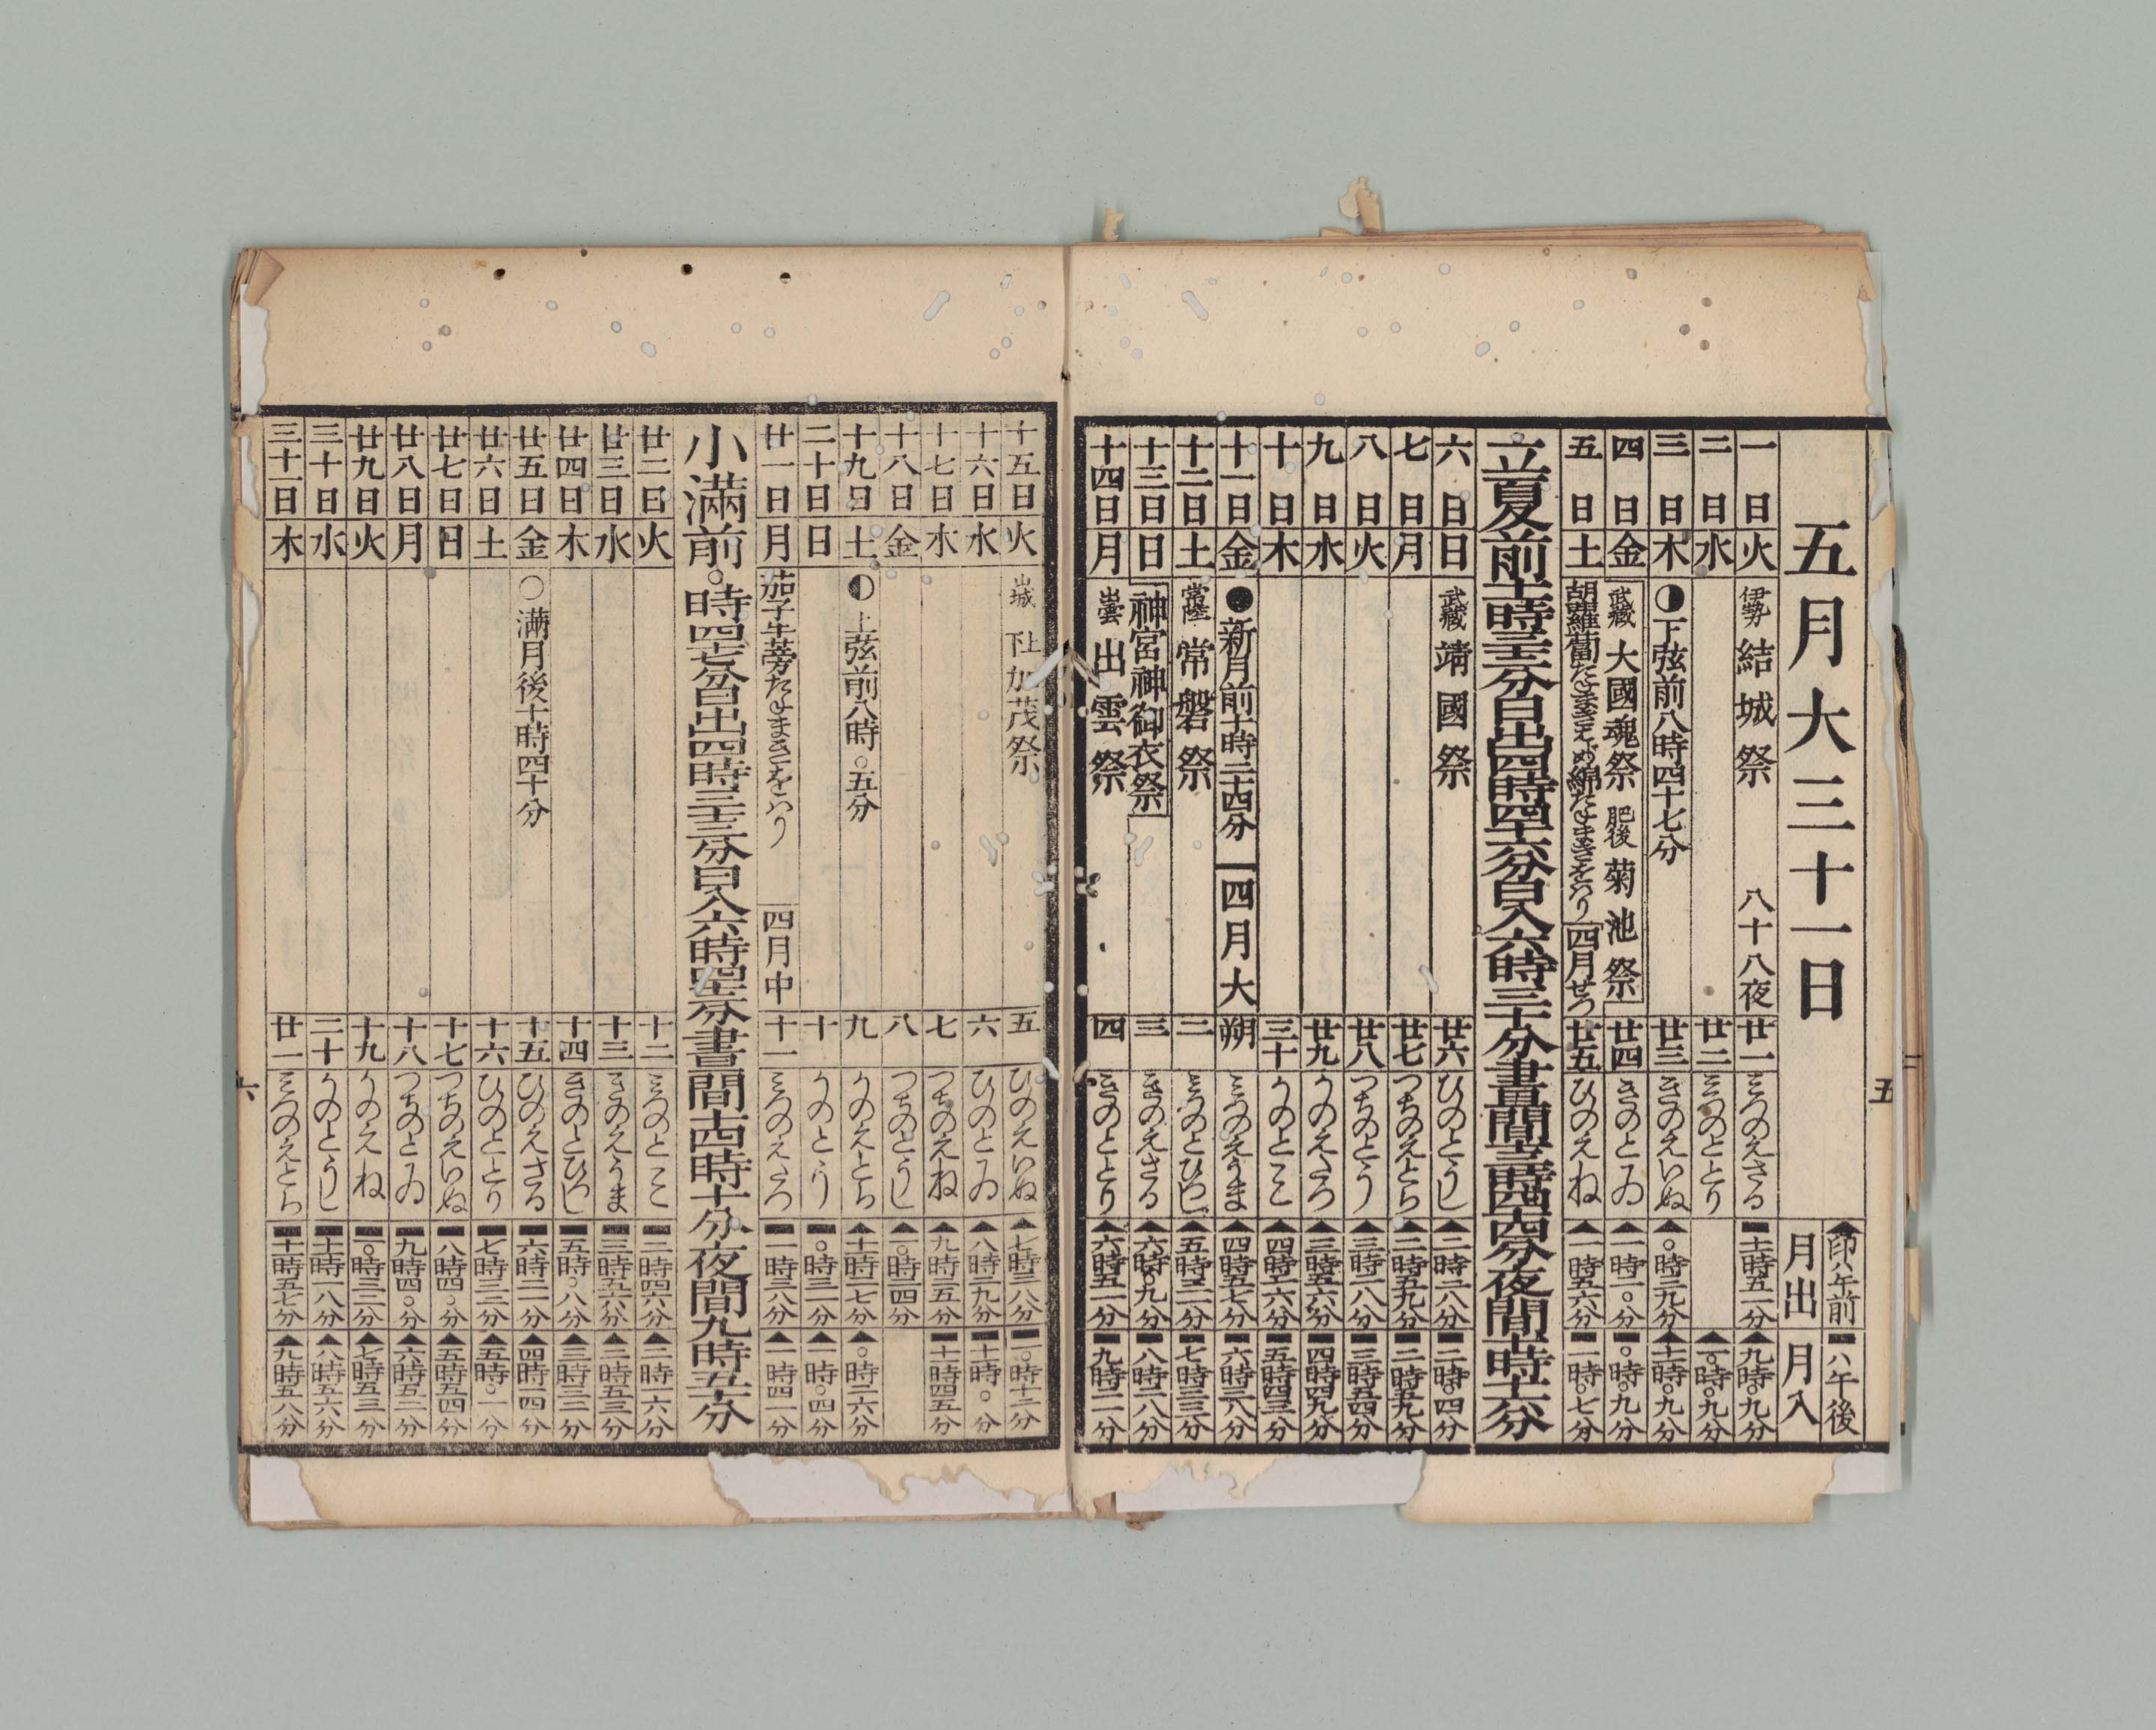 五
▲印ハ午前 ▬ハ午後
五月大三十一日 月出 月入
一日 火 伊勢 結城祭 八十八夜 廿一 みつのえさる ▬十一時五一分 ▲九時〇九分
二日 水 廿二 みつのととり ▲一〇時〇九分
三日 木 ◑下弦前八時四十七分 廿三 きのえいぬ ▲〇時三九分 ▲十一時〇九分
四日 金 武藏 大國魂祭 肥後 菊池祭 廿四 きのとゐ ▲一時一〇分 ▬〇時〇九分
五日 土 胡蘿蔔たねまきそめ綿たねまきをハり 四月せつ 廿五 ひのえね ▲一時五六分 ▬一時〇七分
立夏前十一時三十二分日出四時四十六分日入六時三十分晝間十三時四十四分夜間十時十六分
六日 日 武藏 靖國祭 廿六 ひのとうし ▲二時二八分 ▬二時〇四分
七日 月 廿七 つちのえとら ▲二時五九分 ▬二時五九分
八日 火 廿八 つちのとう ▲三時二八分 ▬三時五四分
九日 水 廿九 かのえたつ ▲三時五六分 ▬四時四九分
十日 木 三十 かのとみ ▲四時二六分 ▬五時四三分
十一日 金 ●新月前十時二十四分 四月大 朔 みつのえうま ▲四時五七分 ▬六時三八分
十二日 土 常陸 常磐祭 二 みつのとひつし ▲五時三一分 ▬七時三三分
十三日 日 神宮神御衣祭 三 きのえさる ▲六時〇九分 ▬八時二八分
十四日 月 出雲 出雲祭 四 きのととり ▲六時五一分 ▬九時二一分
十五日 火 山城 上下加茂祭 五 ひのえいぬ ▲七時三八分 ▬一〇時十二分
十六日 水 六 ひのとゐ ▲八時二九分 ▬十時〇分
十七日 木 七 つちのえね ▲九時二五分 ▬十一時四五分
十八日 金 八 つちのとうし ▲一〇時二四分
十九日 土 ◐上弦前八時〇五分 九 かのえとら ▲十一時二七分 ▲〇時二六分
二十日 日 十 かのとう ▬〇時三一分 ▲一時〇四分
廿一日 月 茄子牛蒡たねまきをハり 四月中 十一 みつのえたつ ▬一時三八分 ▲一時四一分
小滿前〇時四十七分日出四時三十三分日入六時四十三分晝間十四時十分夜間九時五十分
廿二日 火 十二 みつのとみ ▬二時四六分 ▲二時一六分
廿三日 水 十三 きのえうま ▬三時五六分 ▲二時五三分
廿四日 木 十四 きのとひつし ▬五時〇八分 ▲三時三二分
廿五日 金 〇滿月後十時四十分 十五 ひのえさる ▬六時二一分 ▲四時一四分
廿六日 土 十六 ひのととり ▬七時三二分 ▲五時〇一分
廿七日 日 十七 つちのえいぬ ▬八時四〇分 ▲五時五四分
廿八日 月 十八 つちのとゐ ▬九時四〇分 ▲六時五二分
廿九日 火 十九 かのえね ▬一〇時三二分 ▲七時五三分
三十日 水 二十 かのとうし ▬十一時一八分 ▲八時五六分
三十一日 木 廿一 みつのえとら ▬十一時五七分 ▲九時五八分
六